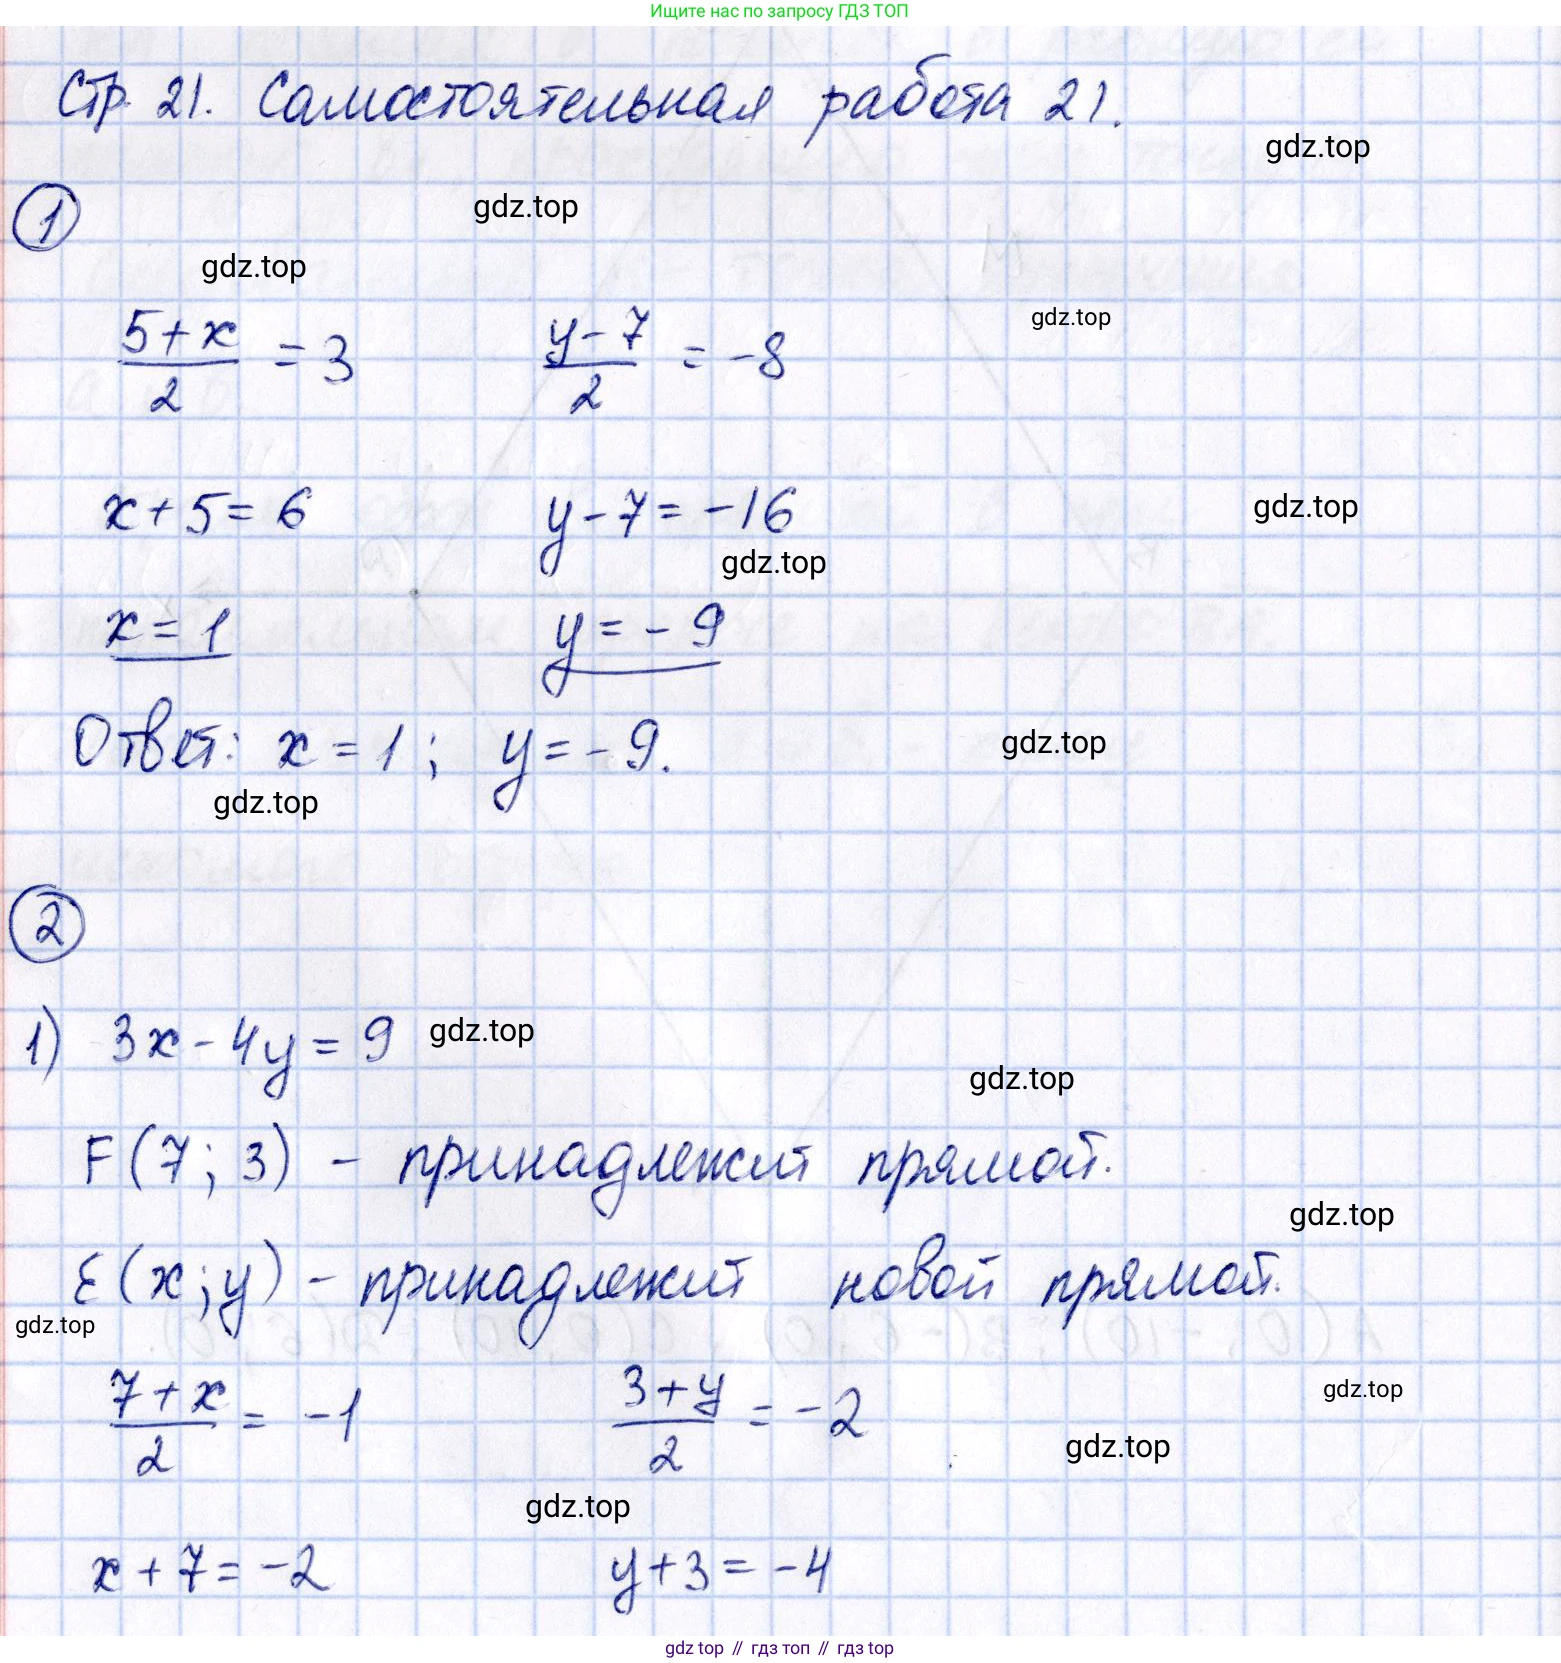 Ищите нас по запросу ГДЗ ТОП
Стр. 21. Самостоятельная работа 21.
gdz.top
1
gdz.top
gdz.top
gdz.top
(5+x)/2 = 3 (y-7)/2 = -8
x+5=6 y-7=-16
gdz.top
gdz.top
x=1 y=-9
Ответ: x=1; y=-9.
gdz.top
gdz.top
2
1) 3x-4y=9
gdz.top
gdz.top
F(7; 3) - принадлежит прямой.
gdz.top
E(x; y) - принадлежит новой прямой.
gdz.top
gdz.top
(7+x)/2 = -1 (3+y)/2 = -2
gdz.top
gdz.top
x+7=-2 y+3=-4
gdz top // гдз топ // гдз top